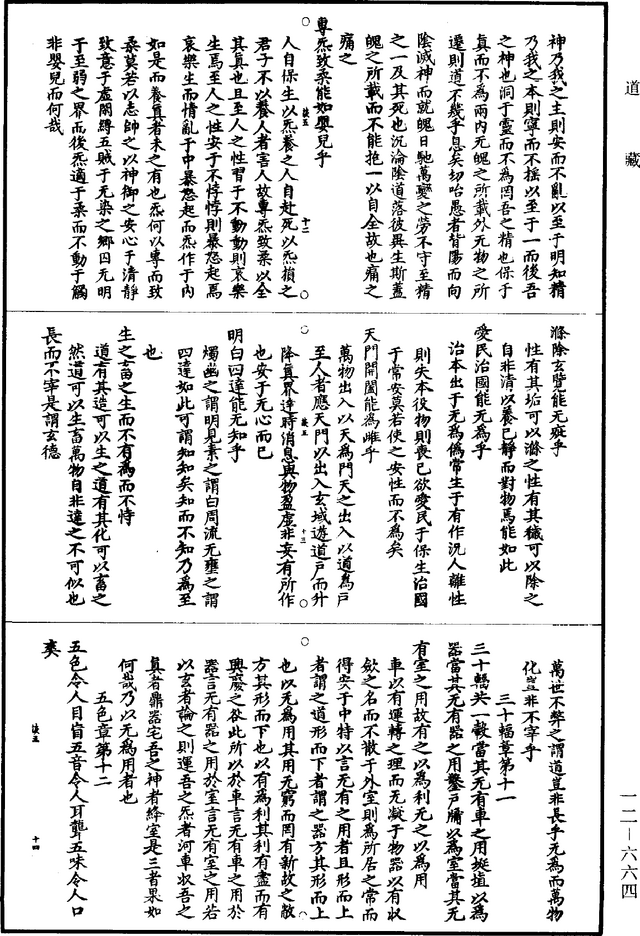 道藏
神乃我之主則安而不亂以至于明知精
乃我之本則寧而不搖以至于一而後吾
之神也洞于靈而不為罔吾之精也保于
真而不為兩内无魄之所載外无物之所
遷則道不幾乎息矣切哈愚者背陽而向
陰滅神而就魄日馳萬變之勞不守至精
之一及其死也沉淪陰道落彼異生斯蓋
魄之所載而不能抱一以自全故也痛之
痛之
專炁致柔能如嬰兒乎
人自保生以炁養之人自赴死以炁損之
君子不以養人者害人故專炁致柔以全
其真也且至人之性習于不動動則哀樂
生焉至人之性安于不悖悖則暴怒起焉
哀樂生而情亂于中暴怒起而炁作于内
如是而養真者未之有也炁何以專而致
柔莫若以志帥之以神御之安心于清靜
致意于虛閑縛五賊于无染之鄉囚无明
于至弱之界而後炁適于柔而不動于觸
非嬰兒而何哉
滌除玄覽能无疵乎
性有其垢可以滌之性有其穢可以除之
自非清以養已靜而對物焉能如此
愛民治國能无為乎
治本出于无為僞常生于有作況人離性
則失本役物則喪已欲愛民于保生治國
于常安莫若使之安性而不為矣
天門開闔能為雌乎
萬物出入以天為門天之出入以道為戶
至人者應天門以出入玄域遊道戶而升
降真界達時消息與物盈虛非妄有所作
也安于无心而已
明白四達能无知乎
燭幽之謂明見素之謂白周流无壅之謂
四達如此可謂知知矣知而不知乃為至
也
生之畜之生而不有為而不恃
道有其造可以生之道有其化可以畜之
然道可以生畜萬物自非達之不可似也
長而不宰是謂玄德
萬世不弊之謂道豈非長乎无為而萬物
化豈非不宰乎
三十輻章第十一
三十輻共一轂當其无有車之用埏埴以為
器當其无有器之用鑿戶牖以為室當其无
有室之用故有之以為利无之以為用
車以有運轉之理而无凝于物器以有收
歛之名而不散于外室則為所居之常而
得安于中特以言无有之用者且形而上
者謂之道形而下者謂之器方其形而上
也以无為用其用无窮而罔有新故之敝
方其形而下也以有為利其利有盡而有
興廢之欲此所以於車言无有車之用於
器言无有器之用於室言无有室之用若
以玄者論之則運吾之炁者河車収吾之
真者鼎器宅吾之神者絳室是三者果如
何哉乃以无為用者也
五色章第十二
五色令人目盲五音令人耳聾五味令人口
爽
一二—六六四